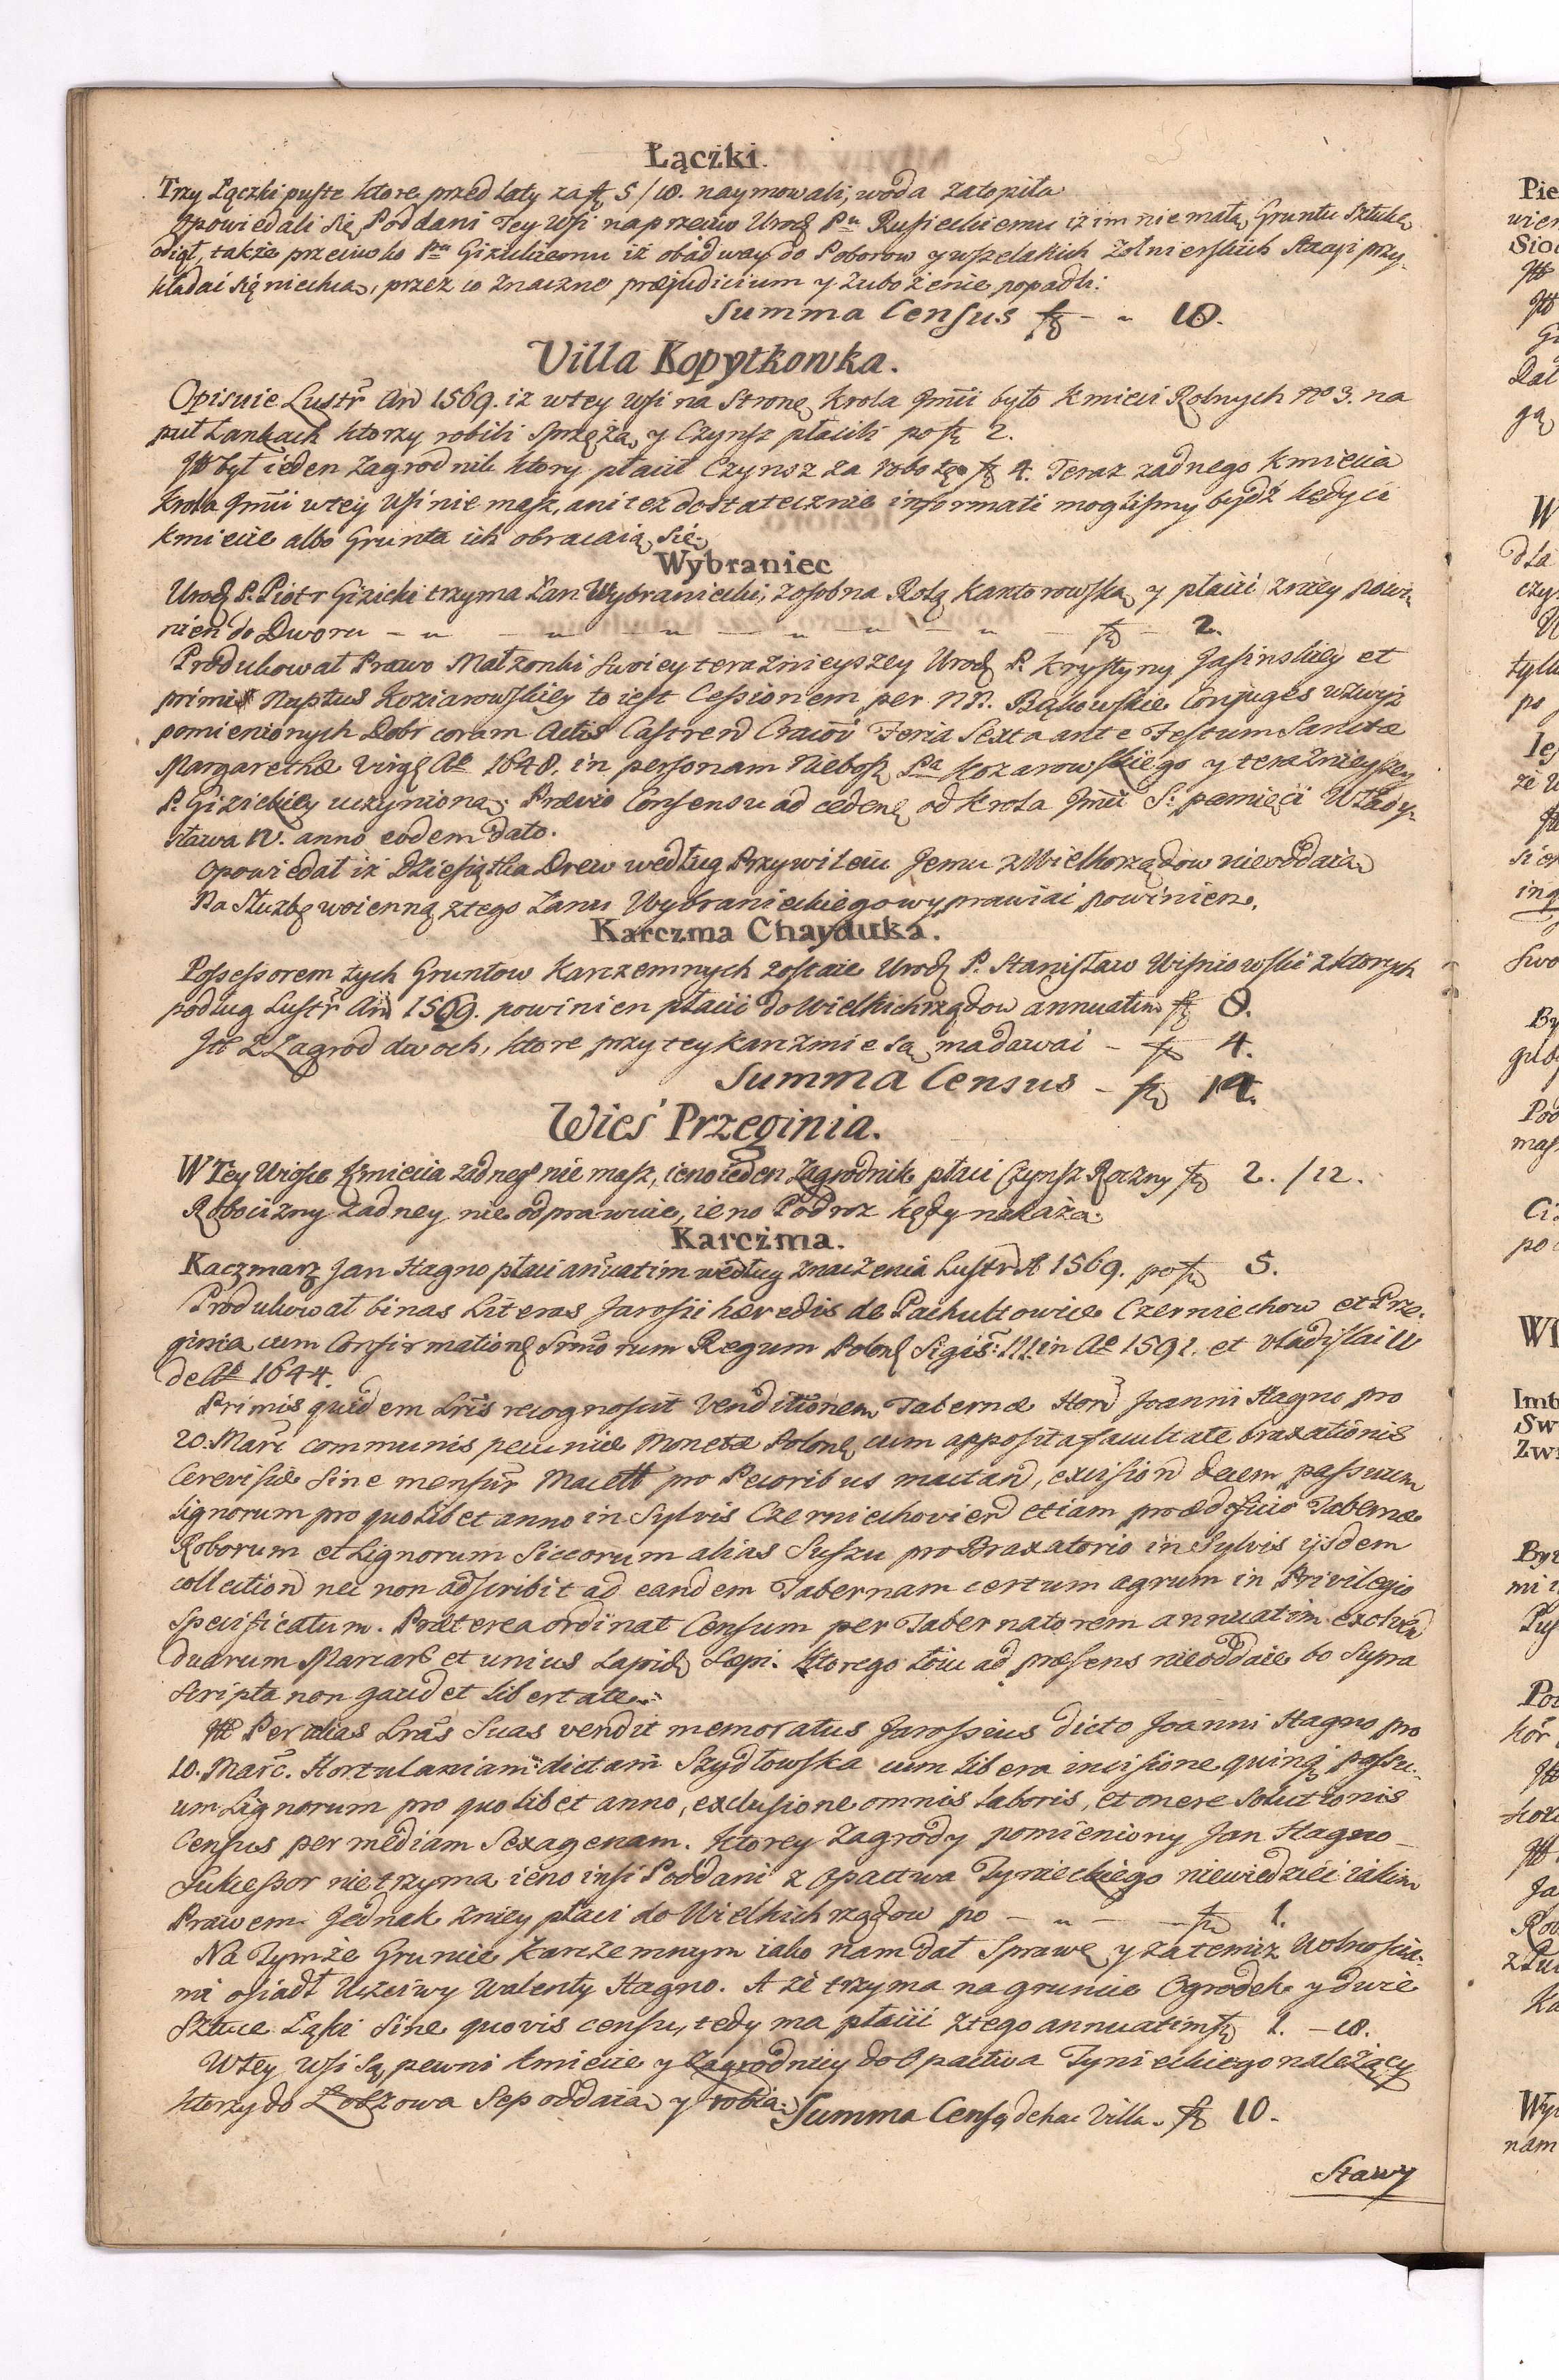 Łączki.
Trzy Łączki puste ktore przed laty za fl 5/18. naymowali, woda zatopiła
Opowiedali się Poddani Tey Wsi naprzeciw Urodz Pu Rusieckiemu iż im nie małą Gruntu Sztukę
odiął, także przeciwko Pu Gizickiemu iż obadway do Poborow y wszelakich Zołnierskich Stacyi przy
kładać się niechcą, przez co znaczne præjudicium y zubożenie popadli.
Summa Census fl - „ 18.
Villa Kopytkowka.
Opisuie Lustr An 1569. iż w tey Wsi na Stronę Krola Jmci było Kmieci Rolnych No 3. na
puł Łankach ktorzy robili sprzężą, y Czynsz płacili po fl 2.
Itt był ieden Zagrodnik ktory płacił Czynsz za robotę fl 4. Teraz zadnego Kmiecia
Krola Jmci w tey Wsi nie masz, ani też dostatecznie informati moglismy bydź kędy ci
Kmiecie albo Grunta ich obracaią się.
Wybraniec
Urodz P. Piotr Gizicki trzyma Łan Wybraniecki, zosobna Rolą Kantorowską y płacić zniey powi-
nien do Dworu - „ - „ - „ - „ - „ - „ - fl - 2.
Produkował Prawo Małzonki swoiey teraznieyszey Urodz P. Krystyny Jasinskiey et
primi Nuptus Koziarowskiey to iest Cessionem per NN. Bąkowskie Conjuges wzwyż
pomienionych Dobr coram Actis Castren Cracov Feria Sexta ante Festum Sanctæ
Margarethæ Virg Ao 1648. in personam Niebosz Pa Kozarowskiego y teraznieyszey
P. Gizickiey uczynioną. Prævio Consensu ad ceden od Krola Jmci S: pamięci Włady-
sława IV. anno eodem dato.
Opowiedał iż Dziesiątka Drew według Przywileiu Jemu z Wielkorządow nieoddaią
Na Służbę woienną z tego Łanu Wybranieckiego wyprawiać powinien.
Karczma Chayduka.
Possessorem tych Gruntow Karczemnych zostaie Urodz P. Stanisław Wisniowski z ktorych
podług Lustr An 1569. powinien płacić do Wielkichrządow annuatim fl 8.
Itt Z Zagrod dwoch, ktore przy tey karczmie są, ma dawać - fl 4.
Summa Census - fl 14.
Wieś Przeginia.
W Tey Wiosce Kmiecia żadneg nie masz, ieno ieden Zagrodnik płaci Czynsz Roczny fl 2./12.
Robocizny żadney nie odprawuie, ieno Podroz kędy nakażą.
Karczma.
Kaczmarz Jan Stagno płaci annuatim według znaczenia Lustr A 1569. po fl 5.
Produkował binas Literas Jarossii hæredis de Pachultowice Czerniechow et Prze-
ginia cum Confirmatione Srmorum Regum Polon Sigis: III. in Ao 1591. et Vladislai IV
de Ao 1644.
Primis quidem Lris recognoscit Venditionem Tabernæ Hon Joanni Stagno pro
20. Marc communis pecuniæ Monetæ Polon cum apposita facultate braxationis
Cerevisiæ sine mensur Macell pro Pecoribus mactan, excision decem passuum
Lignorum pro quolibet anno in Sylvis Czerniechovien etiam pro ædificio Tabernæ
Roborum et Lignorum Siccorum alias Suszu pro Braxatorio in Sylvis ijsdem
collection nec non adscribit ad eandem Tabernam certum agrum in Privilegio
specificatum. Præterea ordinat Censum per Tabernatorem annuatim exolven
duarum Marcar et unius Lapid Sæpi. Ktorego Łoiu ad præsens nieoddaie bo supra
scripta non gaudet libertate.
Itt Per alias Lras suas vendit memoratus Jarossius dicto Joanni Stagno pro
10. Marc. Hortulaniam dictam Szydłowska cum libera incisione quinq passu-
um Lignorum pro quolibet anno, exclusione omnis laboris, et onere Solutionis
Census per mediam Sexagenam. Ktorey Zagrody pomieniony Jan Stagno
Sukcessor nie trzyma ieno insi Poddani z Opactwa Tynieckiego niewiedzieć iakim
Prawem. Jednak zniey płaci do Wielkich rządow po - „ - - fl 1.
Na Tymże Gruncie Karczemnym iako nam dał Sprawę y zatemiż Wolnoscia-
mi osiadł Uczciwy Walenty Stagno. A że trzyma na gruncie Ogrodek y dwie
Sztuce Łąki sine quovis censu, tedy ma płacić z tego annuatim fl 1. - 18.
W tey Wsi są pewni Kmiecie y Zagrodnicy do Opactwa Tynieckiego należący
ktorzy do Łobzowa Sep oddaią y robią. Summa Censq de hac Villa. fl 10.
Stawy